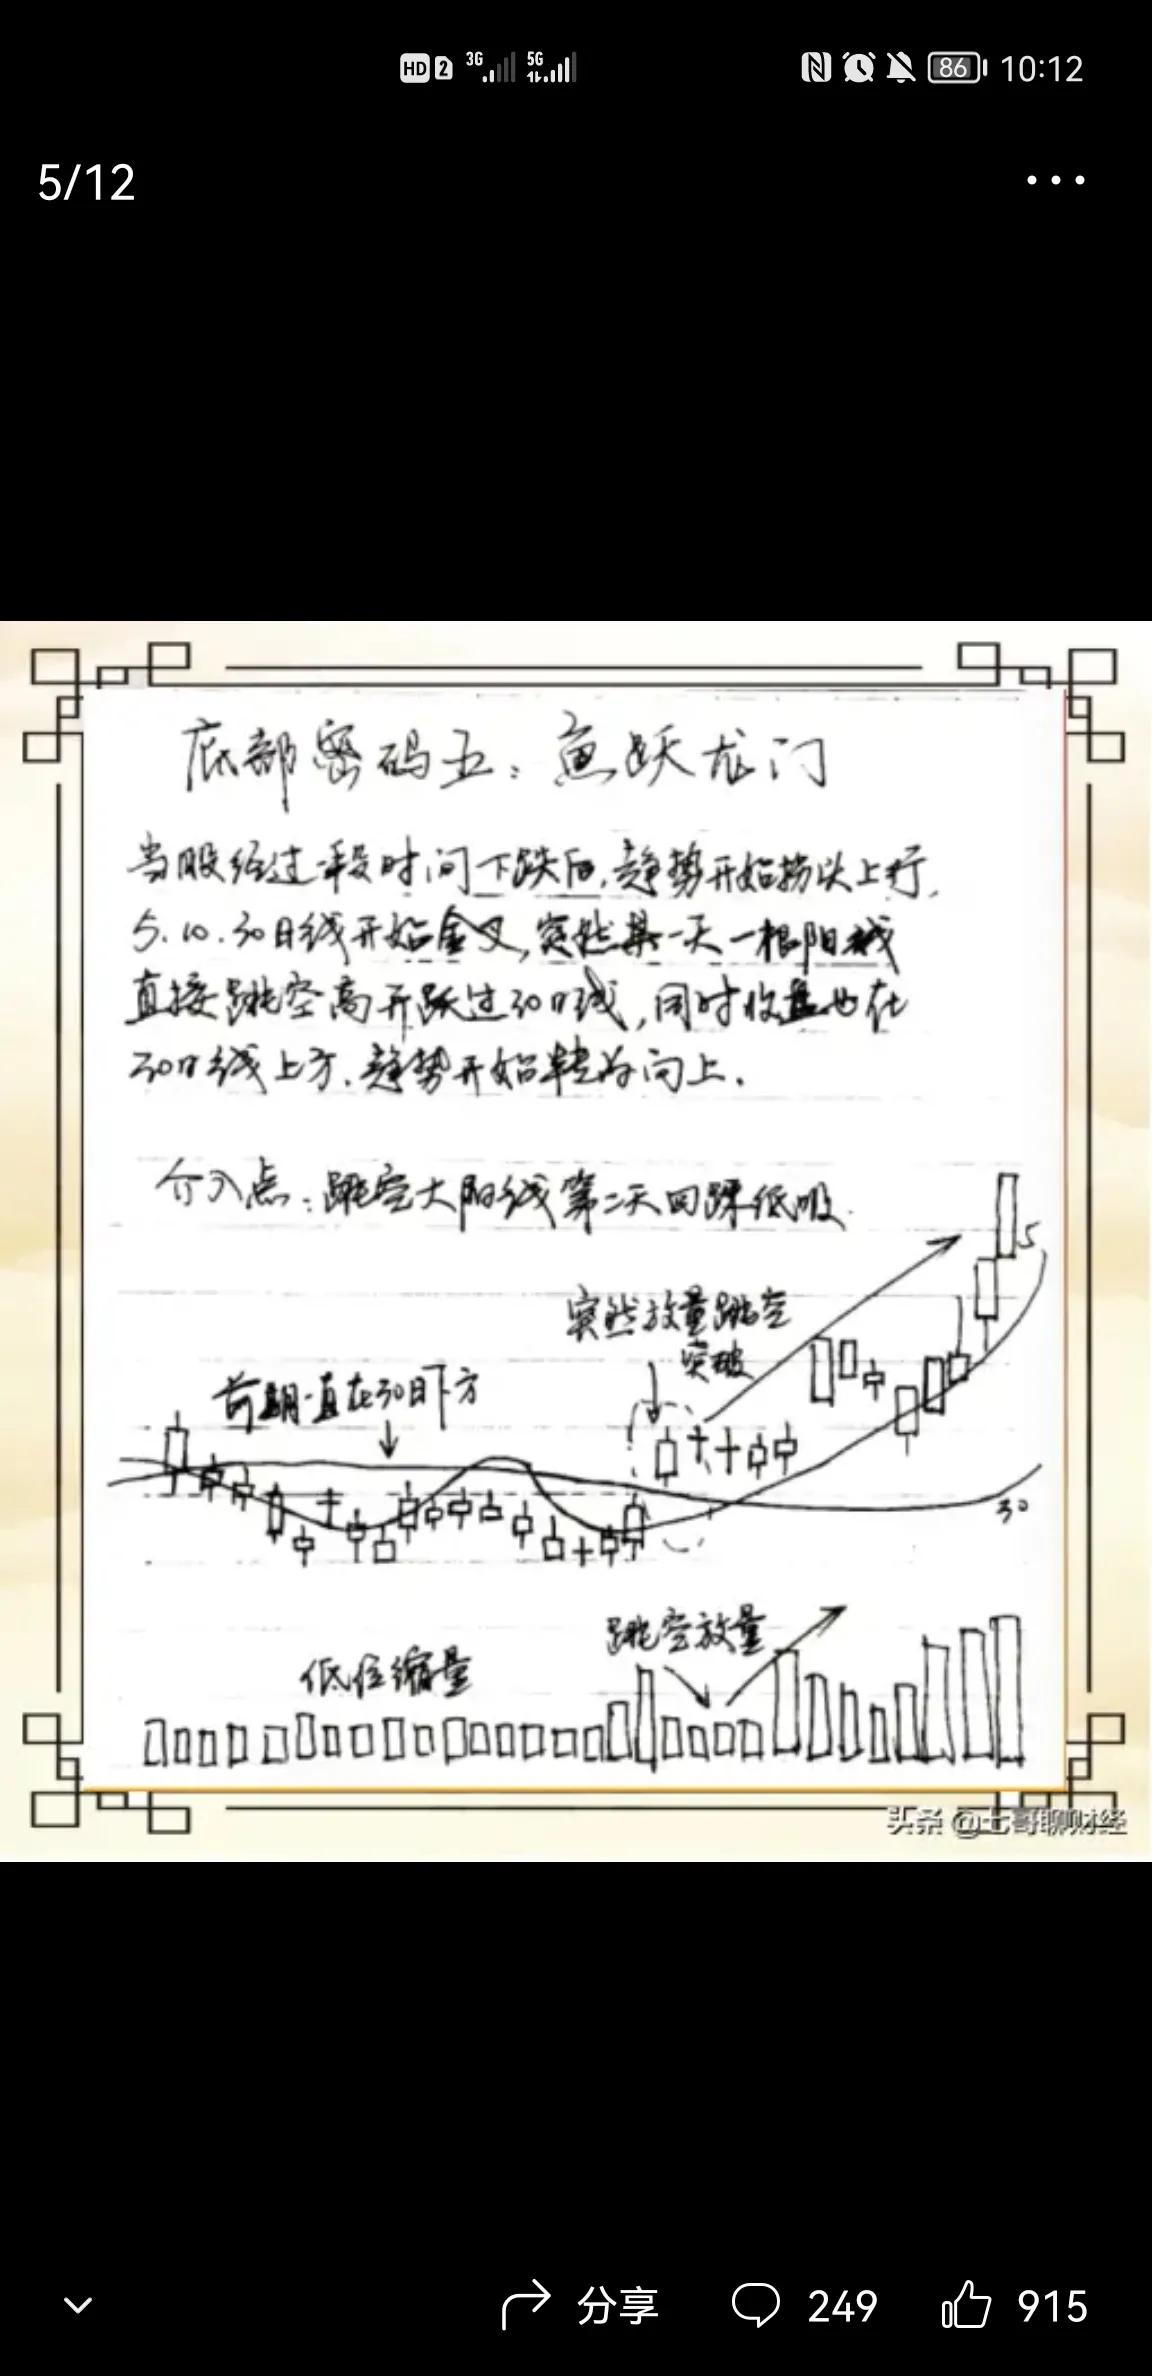 HD 2 3G 5G 86 10:12
5/12
底部密码五：鱼跃龙门
当股经过一段时间下跌后，趋势开始拐头上行，
5.10.30日线开始金叉，突然某一天一根阳线
直接跳空高开跃过30日线，同时收盘也在
30日线上方，趋势开始转为向上。
介入点：跳空大阳线第二天回踩低吸.
5
突然放量跳空
突破
前期一直在30日下方
30
跳空放量
低位缩量
头条 @七哥聊财经
分享 249 915